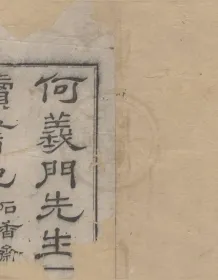 何義門先生
讀書記
石香齋